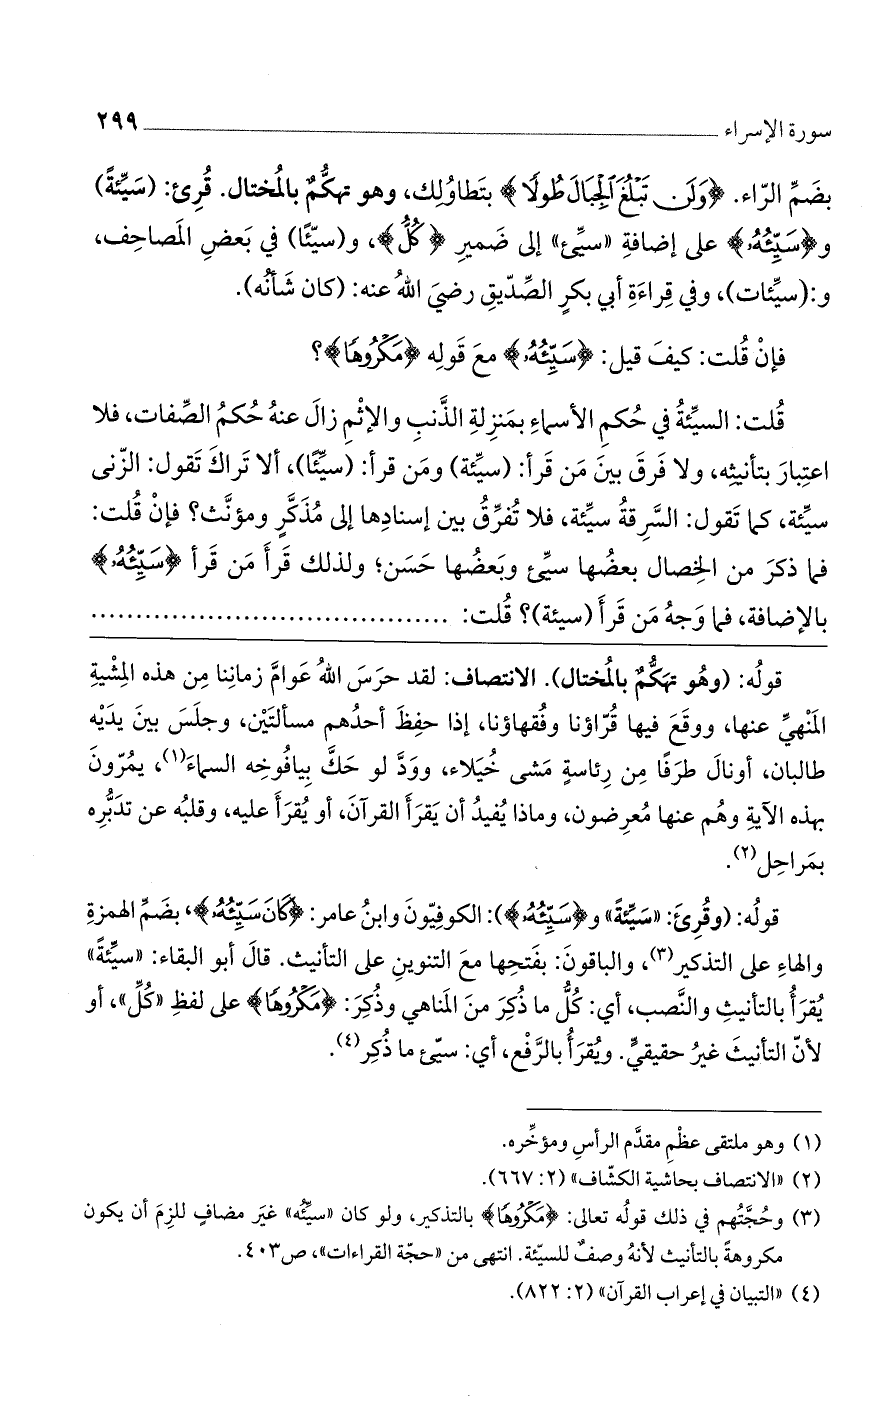 سورة الإسراء ٢٩٩
بضَمِّ الرّاء. ﴿وَلَن تَبْلُغَ ٱلْجِبَالَ طُولًا﴾ بتَطاوُلِك، وهو تهكُّمٌ بالمُختال. قُرِئ: (سَيِّئَةً)
و﴿سَيِّئُهُۥ﴾ على إضافةِ «سيِّئ» إلى ضَميرِ ﴿كُلُّ﴾، و(سيّئًا) في بَعضِ المَصاحِف،
و:(سيِّئات)، وفي قِراءَةِ أبي بكرٍ الصِّدّيقِ رضيَ اللهُ عنه: (كان شَأنُه).
فإنْ قُلت: كيفَ قيل: ﴿سَيِّئُهُۥ﴾ معَ قَولِه ﴿مَكْرُوهًا﴾؟
قُلت: السيِّئةُ في حُكمِ الأسماءِ بمَنزِلةِ الذَّنبِ والإثْمِ زالَ عنهُ حُكمُ الصِّفات، فلا
اعتِبارَ بتأنيثِه، ولا فرقَ بينَ مَن قرأ: (سيِّئة) ومَن قرأ: (سيِّئًا)، ألا تَراكَ تَقول: الزّنى
سيِّئة، كما تَقول: السَّرِقةُ سيِّئة، فلا تُفرِّقُ بين إسنادِها إلى مُذَكَّرٍ ومؤنَّث؟ فإنْ قُلت:
فما ذكرَ من الخِصال بعضُها سيِّئ وبَعضُها حَسَن؛ ولذلك قَرأَ مَن قَرأ ﴿سَيِّئُهُۥ﴾
بالإضافة، فما وَجهُ مَن قَرأَ (سيئة)؟ قُلت: .....................................
قولُه: (وهُو تهكُّمٌ بالمُختال). الانتصاف: لقد حرَسَ اللهُ عَوامَّ زمانِنا مِن هذه المِشْيةِ
المَنْهيِّ عنها، ووقَعَ فيها قُرّاؤنا وفُقهاؤنا، إذا حفِظَ أحدُهم مسألتَيْن، وجلَسَ بينَ يدَيْه
طالبان، أونالَ طرَفًا مِن رِئاسةٍ مَشى خُيَلاء، وودَّ لو حَكَّ بيافُوخِه السماءَ(١)، يمُرّونَ
بهذه الآيةِ وهُم عنها مُعرِضون، وماذا يُفيدُ أن يَقرَأَ القرآنَ، أو يُقرَأَ عليه، وقلبُه عن تدَبُّرِه
بمَراحِل(٢).
قولُه: (وقُرِئَ: «سَيِّئَةً» و﴿سَيِّئُهُۥ﴾): الكوفيّونَ وابنُ عامر: ﴿كَانَ سَيِّئُهُۥ﴾، بضَمِّ الهمزةِ
والهاءِ على التذكير(٣)، والباقونَ: بفَتحِها معَ التنوينِ على التأنيث. قالَ أبو البقاء: «سيِّئةً»
يُقرَأُ بالتأنيثِ والنَّصب، أي: كُلُّ ما ذُكِرَ منَ المَناهي وذُكِرَ: ﴿مَكْرُوهًا﴾ على لفظِ «كُلِّ»، أو
لأنّ التأنيثَ غيرُ حقيقيٍّ. ويُقرَأُ بالرَّفْع، أي: سيّئ ما ذُكِر(٤).
(١) وهو ملتقى عظْمِ مقدَّم الرأسِ ومؤخِّره.
(٢) «الانتصاف بحاشية الكشّاف» (٢: ٦٦٧).
(٣) وحُجَّتُهم في ذلك قولُه تعالى: ﴿مَكْرُوهًا﴾ بالتذكير، ولو كان «سيِّئُه» غيَر مضافٍ للزِمَ أن يكون
مكروهةً بالتأنيث لأنهُ وصفٌ للسيّئة. انتهى من «حجّة القراءات»، ص٤٠٣.
(٤) «التبيان في إعراب القرآن» (٢: ٨٢٢).